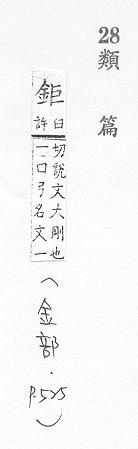 28
類篇
鉅 臼許切說文大剛也一曰弓名文一
（金部．P.525）